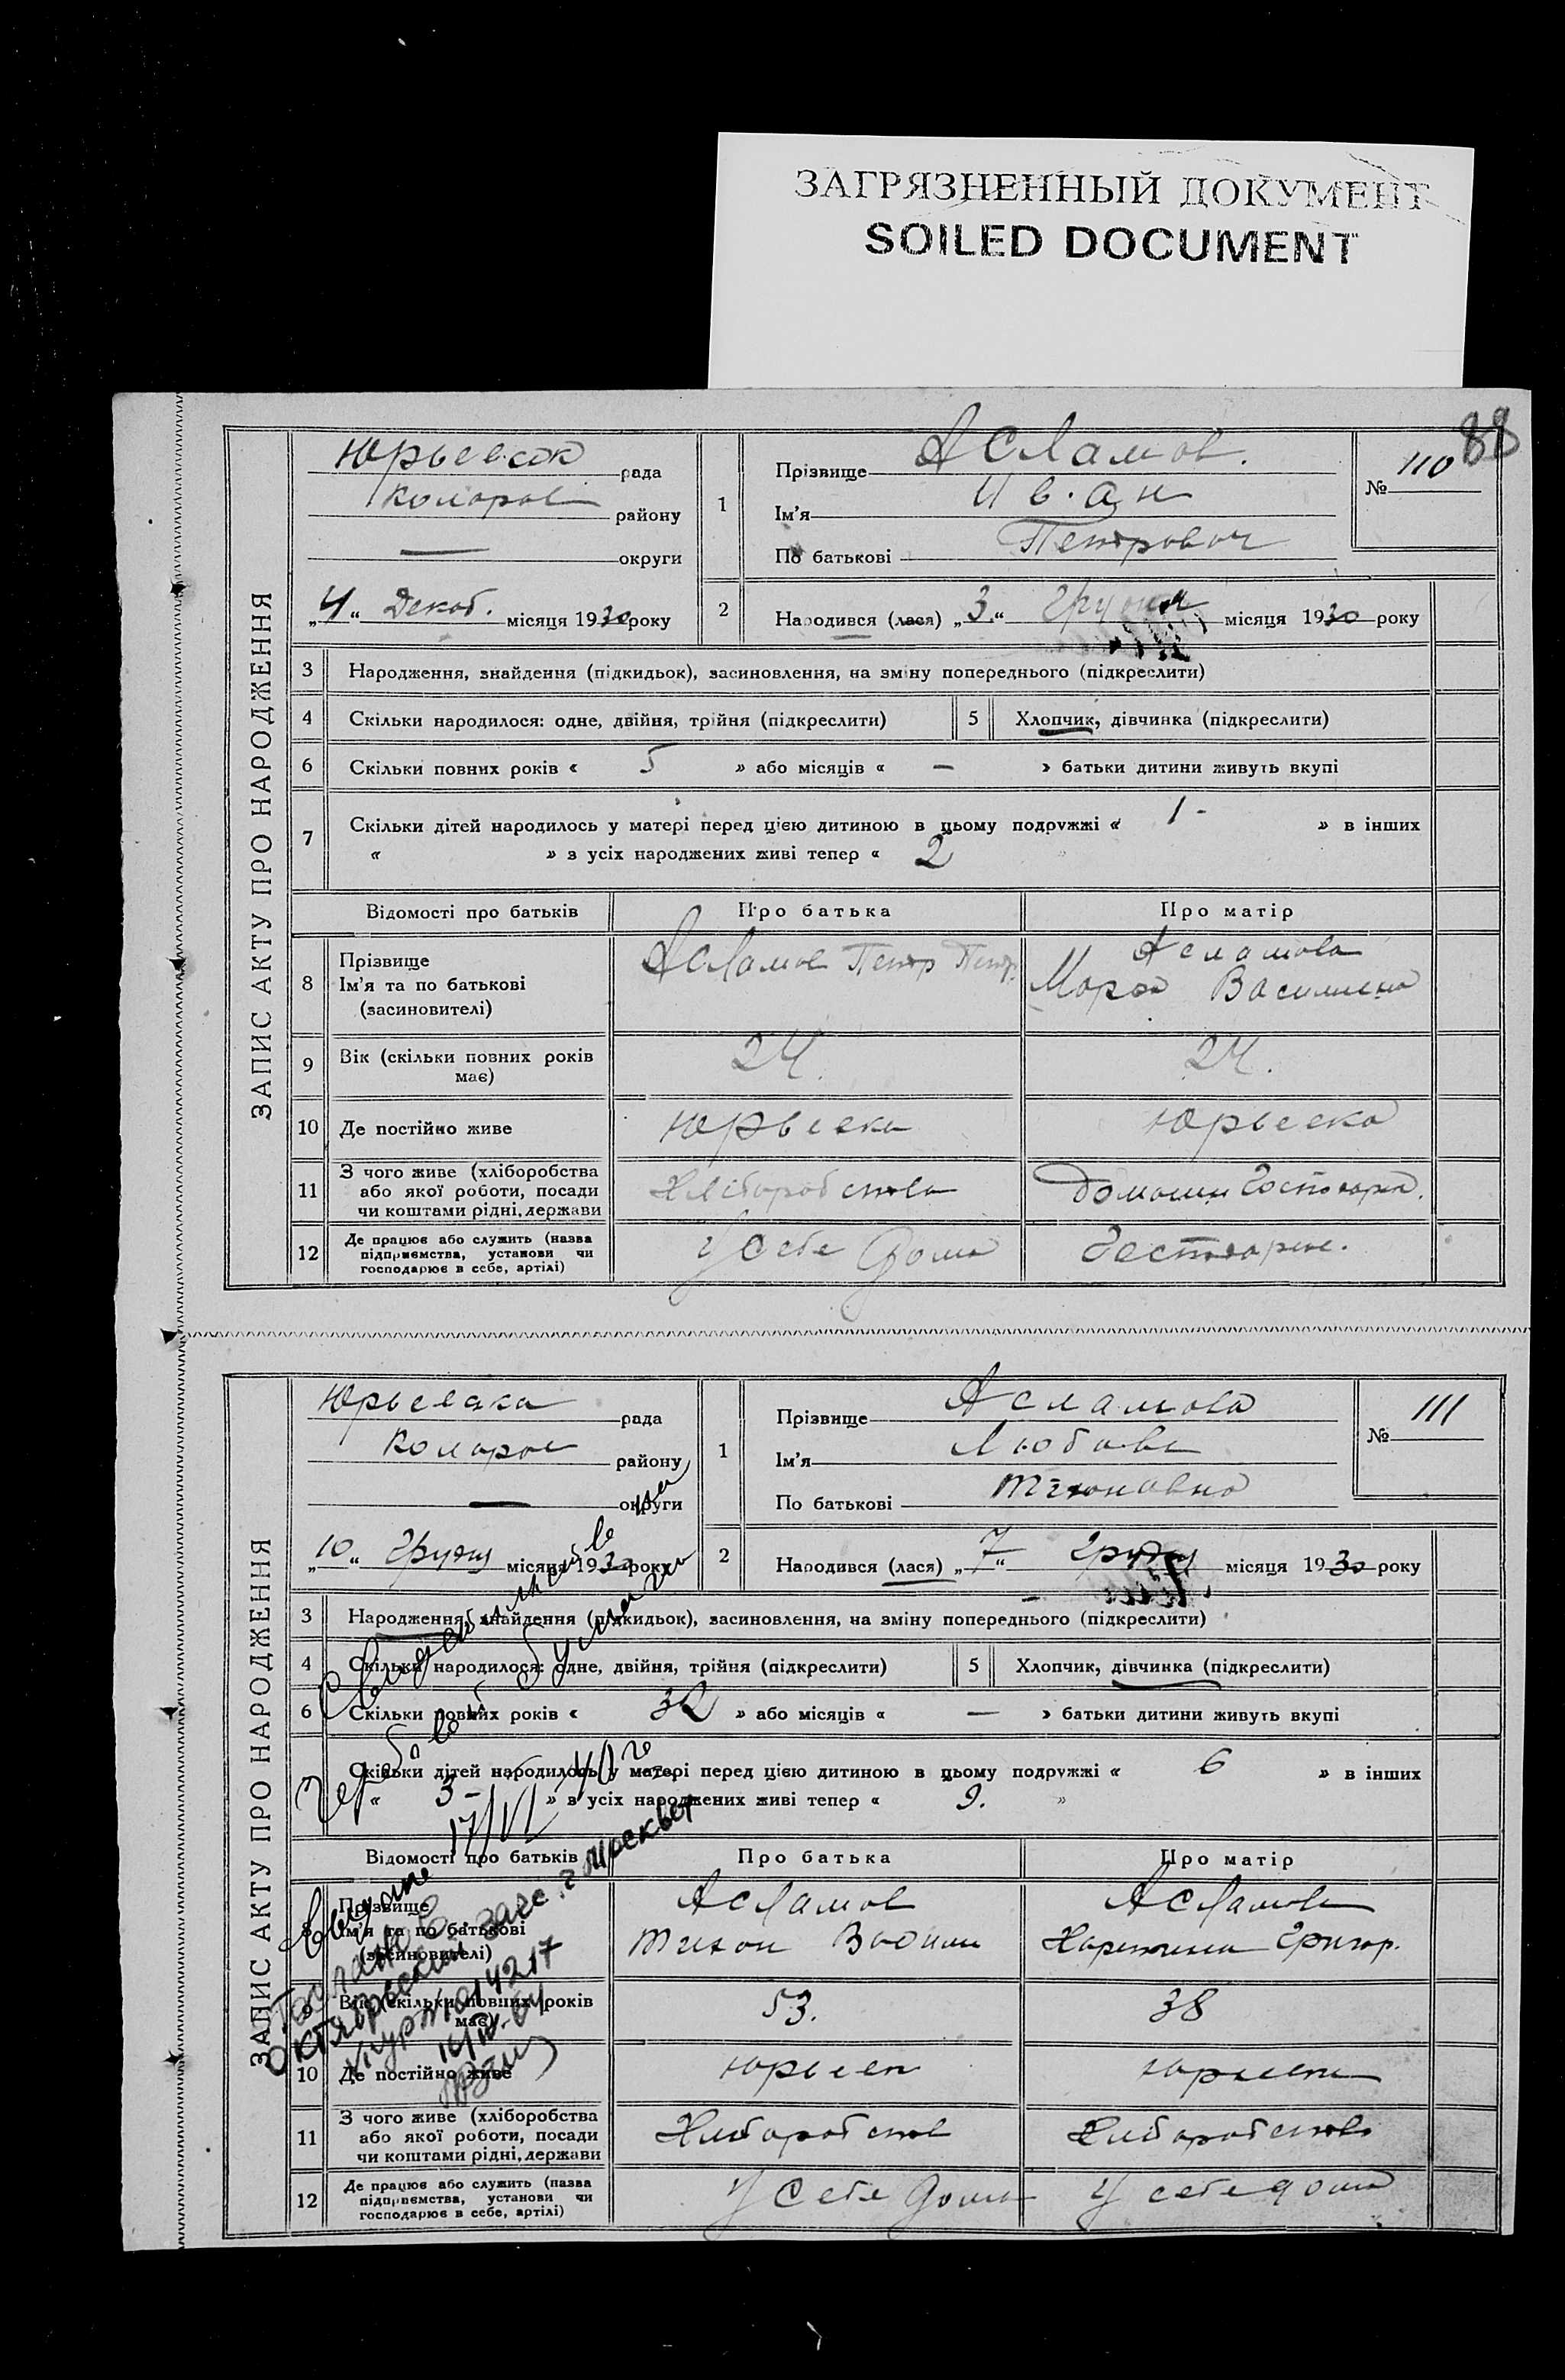 ЗАГРЯЗНЕННЫЙ ДОКУМЕНТ
SOILED DOCUMENT
88
ЗАПИС АКТУ ПРО НАРОДЖЕННЯ
Юрьевск рада
Коларов району
— округи
„4“ Декаб. місяця 1930 року
1
Прізвище Асламов.
Ім'я Иван
По батькові Петрович
№ 110
2
Народився (лася) „3.“ Грудня місяця 1930 року
3 Народження, знайдення (підкидьок), засиновлення, на зміну попереднього (підкреслити)
4 Скільки народилося: одне, двійня, трійня (підкреслити) 5 Хлопчик, дівчинка (підкреслити)
6 Скільки повних років « 5 » або місяців « — » батьки дитини живуть вкупі
7 Скільки дітей народилось у матері перед цією дитиною в цьому подружжі « 1 - » в інших
« » з усіх народжених живі тепер « 2 »
Відомості про батьків Про батька Про матір
8 Прізвище
Ім'я та по батькові
(засиновителі)
Асламов Петр Петр.
Асламова
Марфа Василивна
9 Вік (скільки повних років
має)
24.
24.
10 Де постійно живе Юрьевка Юрьевка
11 З чого живе (хліборобства
або якої роботи, посади
чи коштами рідні, держави
Хлiборобство
Домашни Господарка.
12 Де працює або служить (назва
підприємства, установи чи
господарює в себе, артілі)
У себе дома
Господарює.
ЗАПИС АКТУ ПРО НАРОДЖЕННЯ
Юрьевка рада
Коларов району
— округи
„10“ Грудня місяця 1930 року
1
Прізвище Асламова
Ім'я Любовь
По батькові Тихоновна
№ 111
2
Народився (лася) „7“ Грудня місяця 1930 року
3 Народження, знайдення (підкидьок), засиновлення, на зміну попереднього (підкреслити)
4 Скільки народилося: одне, двійня, трійня (підкреслити) 5 Хлопчик, дівчинка (підкреслити)
6 Скільки повних років « 32 » або місяців « — » батьки дитини живуть вкупі
7 Скільки дітей народилось у матері перед цією дитиною в цьому подружжі « 6 » в інших
« 3 - » з усіх народжених живі тепер « 9. »
Свидетельство на
гербовой бумаге
17/VI 40 г
Выдано
Октябрьский загс г. Москвы
Відомості про батьків Про батька Про матір
8 Прізвище
Ім'я та по батькові
(засиновителі)
Асламов
Тихон Васили
Асламова
Харитина Григор.
9 Вік (скільки повних років
має)
53.
38
10 Де постійно живе Юрьевк Юрьевка
11 З чого живе (хліборобства
або якої роботи, посади
чи коштами рідні, держави
Хлиборобство
Хлиборобство
12 Де працює або служить (назва
підприємства, установи чи
господарює в себе, артілі)
У себе дома
У себе дома